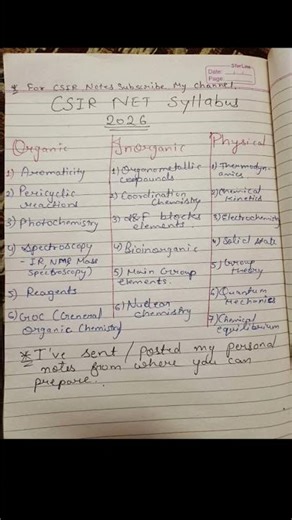 Star Line
Date:
Page:
* For CSIR Notes Subscribe My Channel
CSIR NET Syllabus
2026
Organic
1) Aromaticity
2) Pericyclic
reactions
3) Photochemistry
4) Spectroscopy
- IR, NMR Mass
Spectroscopy)
5) Reagents
6) GOC (General
Organic Chemistry)
Inorganic
1) Organometallic
Compounds
2) Coordination
Chemistry
3) d&f blocks
elements.
4) Bioinorganic
5) Main Group
elements.
6) Nuclear
Chemistry
Physical
1) Thermodyn-
amics
2) Chemical
kinetics
3) Electrochemistry
4) Solid State
5) Group
theory
6) Quantum
Mechanics
7) Chemical
equilibrium
* I've sent / posted my personal
notes from where you can
prepare..